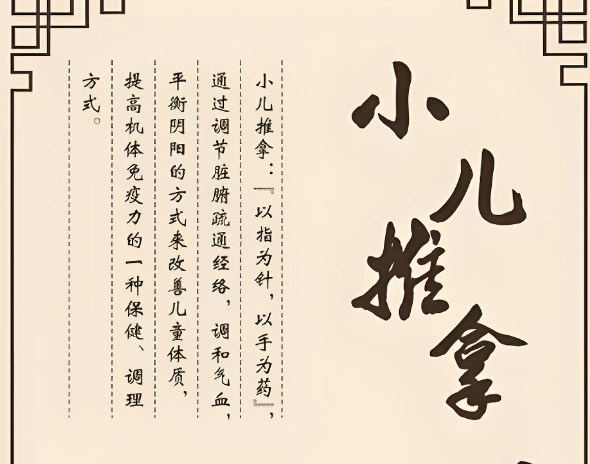 小儿推拿
小儿推拿：『以指为针，以手为药』，
通过调节脏腑疏通经络，调和气血，
平衡阴阳的方式来改善儿童体质，
提高机体免疫力的一种保健、调理
方式。